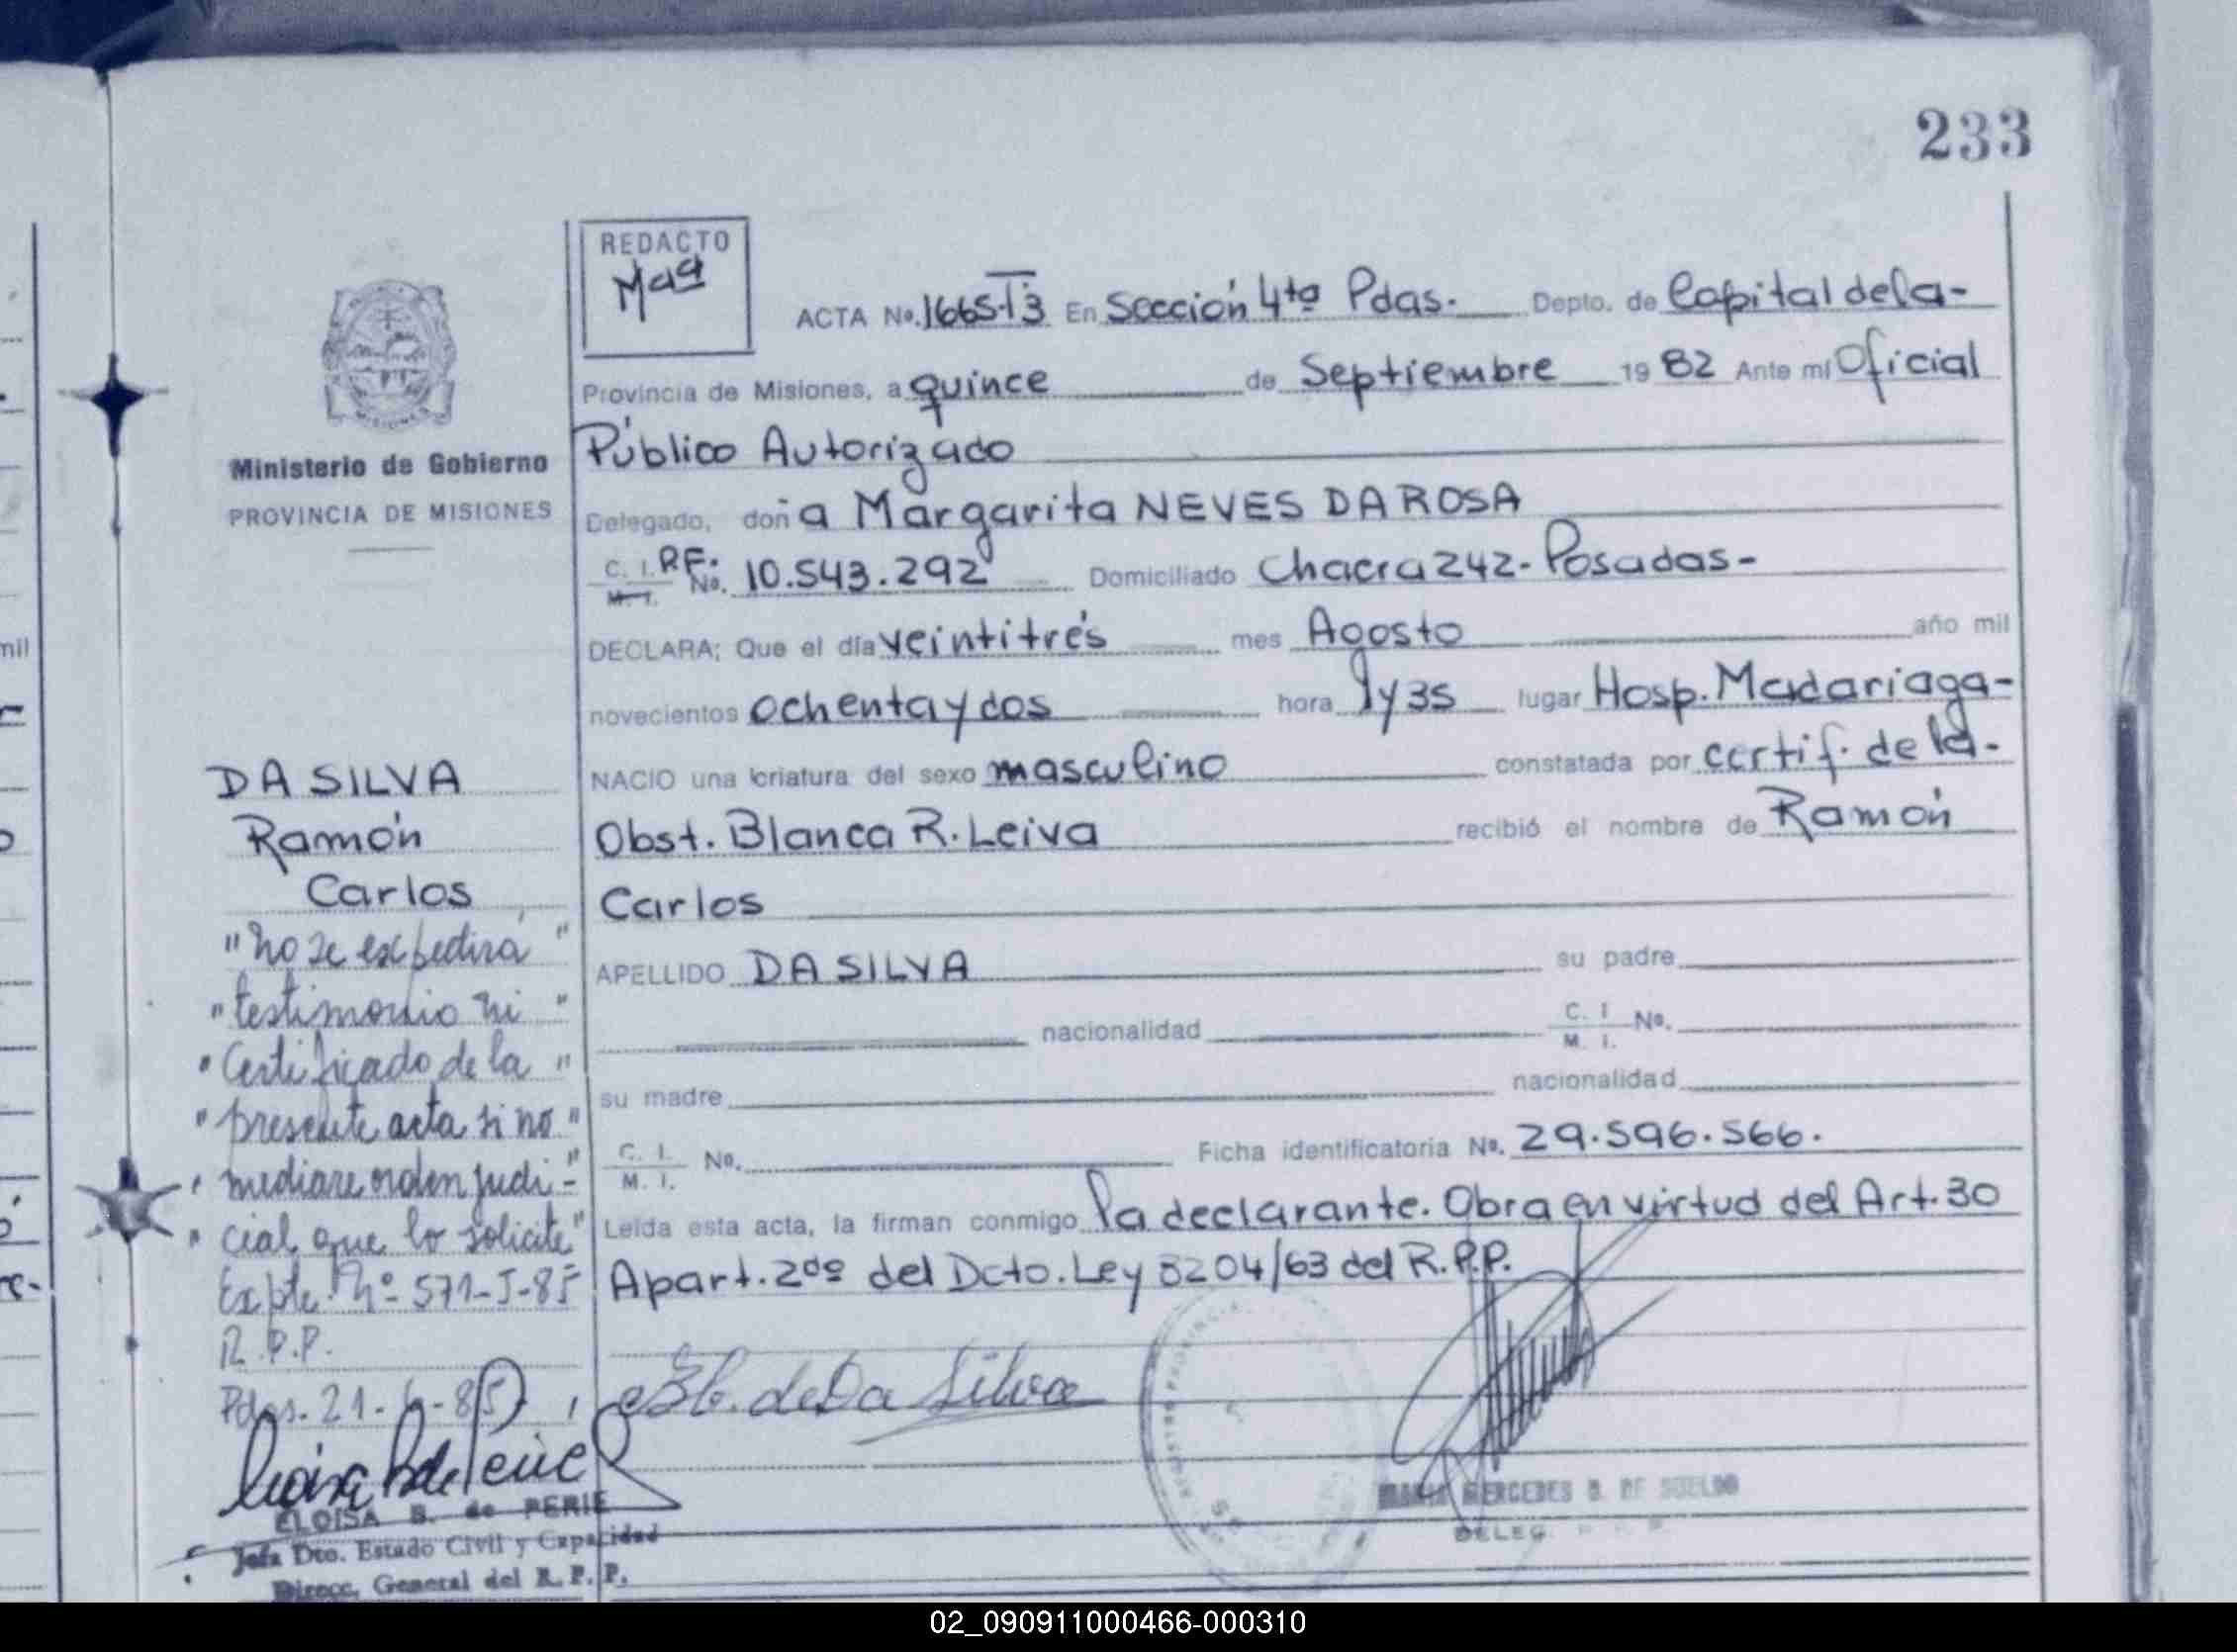 233
REDACTO
Mªª
ACTA No. 1665-T3 En Sección 4ta Pdas. Depto. de Capital dela-
Provincia de Misiones, a quince de Septiembre 1982 Ante mí Oficial
Público Autorizado
Ministerio de Gobierno
PROVINCIA DE MISIONES
Delegado, doña Margarita NEVES DA ROSA
C. I. RF. M. I. No. 10.543.292 Domiciliado Chacra 242-Posadas-
DECLARA; Que el día veintitrés mes Agosto año mil
novecientos ochenta y dos hora 1 y 35 lugar Hosp. Madariaga-
NACIO una criatura del sexo masculino constatada por certif. de la-
Obst. Blanca R. Leiva recibió el nombre de Ramón
Carlos
APELLIDO DA SILVA su padre
nacionalidad C. I. M. I. No.
su madre nacionalidad
C. I. M. I. No. Ficha identificatoria No. 29.596.566.
Leída esta acta, la firman conmigo la declarante. Obra en virtud del Art. 30
Apart. 2do del Dcto. Ley 8204/63 del R.P.P.
DA SILVA
Ramón
Carlos
"no se expedirá"
"testimonio ni"
"Certificado de la"
"presente acta si no"
"mediare orden judi-"
"cial que lo solicite"
Expte Nº 571-J-85
R.P.P.
Pdas. 21-6-85
de Da Silva
ELOISA B. de PERIE
Jefa Dto. Estado Civil y Capacidad
Direcc. General del R. P. P.
MARIA MERCEDES B. DE SUELDO
DELEG. R. P. P.
02_090911000466-000310